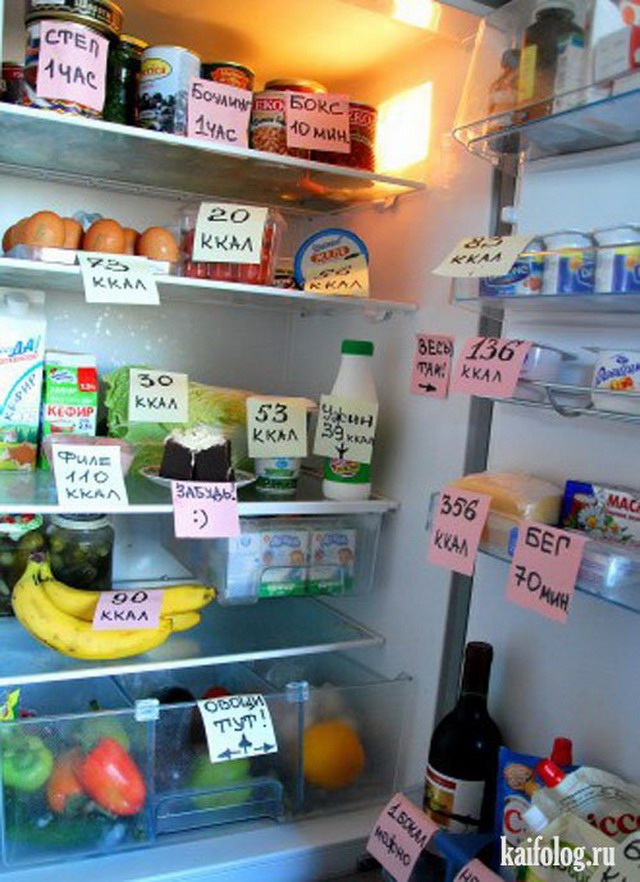 СТЕП
1 ЧАС
БОУЛИНГ
1 ЧАС
БОКС
10 МИН.
20
ККАЛ
73
ККАЛ
ККАЛ
83
ККАЛ
ВЕСЬ
ТАМ!
136
ККАЛ
КЕФИР
КЕФИР
30
ККАЛ
53
ККАЛ
УЖИН
39 ККАЛ
ФИЛЕ
110
ККАЛ
ЗАБУДЬ!
:)
356
ККАЛ
БЕГ
70 МИН.
МАС
90
ККАЛ
ОВОЩИ
ТУТ!
1 БОКАЛ
МОЖНО
kaifolog.ru